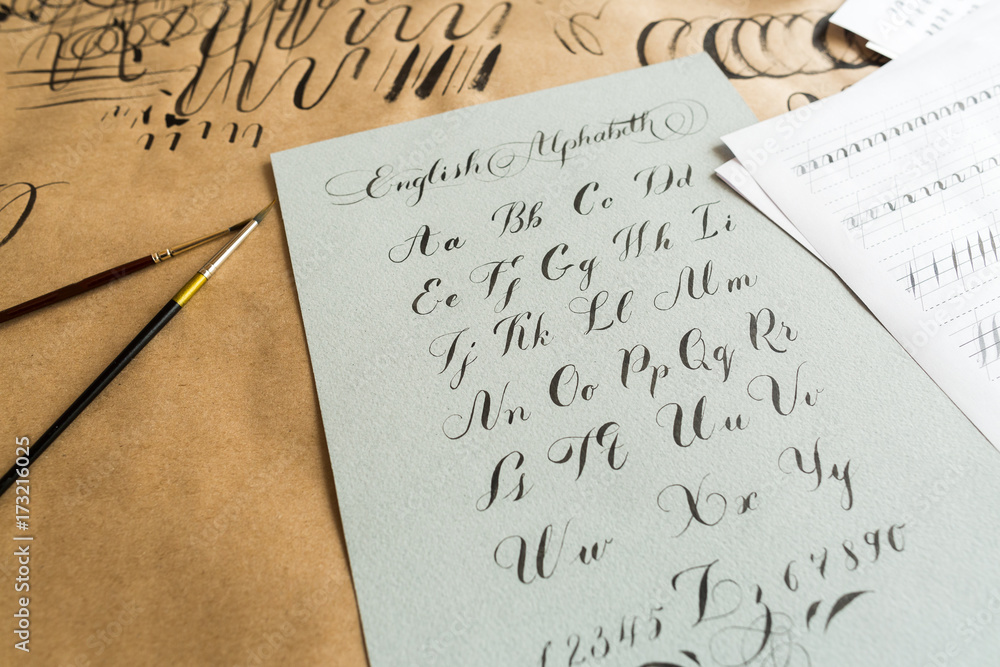 English Alphabeth
Aa Bb Cc Dd
Ee Ff Gg Hh Ii
Jj Kk Ll Mm
Nn Oo Pp Qq Rr
Ss Tt Uu Vv
Ww Xx Yy
12345 Zz 67890
Adobe Stock | #173216025